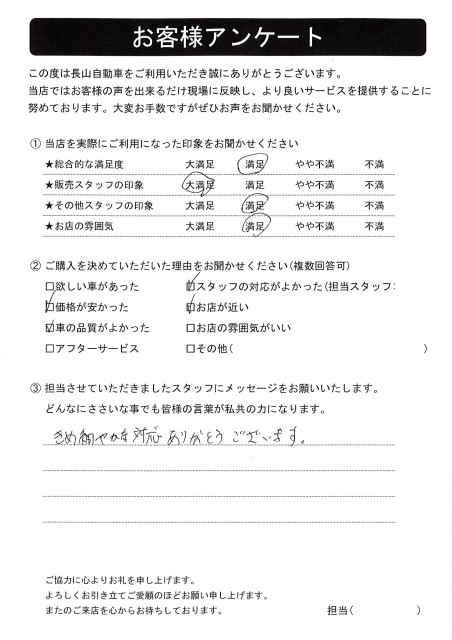 お客様アンケート
この度は長山自動車をご利用いただき誠にありがとうございます。
当店ではお客様の声を出来るだけ現場に反映し、より良いサービスを提供することに
努めております。大変お手数ですがぜひお声をお聞かせください。
① 当店を実際にご利用になった印象をお聞かせください
★総合的な満足度 大満足 満足 やや不満 不満
★販売スタッフの印象 大満足 満足 やや不満 不満
★その他スタッフの印象 大満足 満足 やや不満 不満
★お店の雰囲気 大満足 満足 やや不満 不満
② ご購入を決めていただいた理由をお聞かせください(複数回答可)
□欲しい車があった ☑スタッフの対応がよかった(担当スタッフ:
☑価格が安かった ☑お店が近い
☑車の品質がよかった □お店の雰囲気がいい
□アフターサービス □その他( )
③ 担当させていただきましたスタッフにメッセージをお願いいたします。
どんなにささいな事でも皆様の言葉が私共の力になります。
きめ細やかな対応ありがとうございます。
ご協力に心よりお礼を申し上げます。
よろしくお引き立てご愛顧のほどお願い申し上げます。
またのご来店を心からお待ちしております。 担当( )